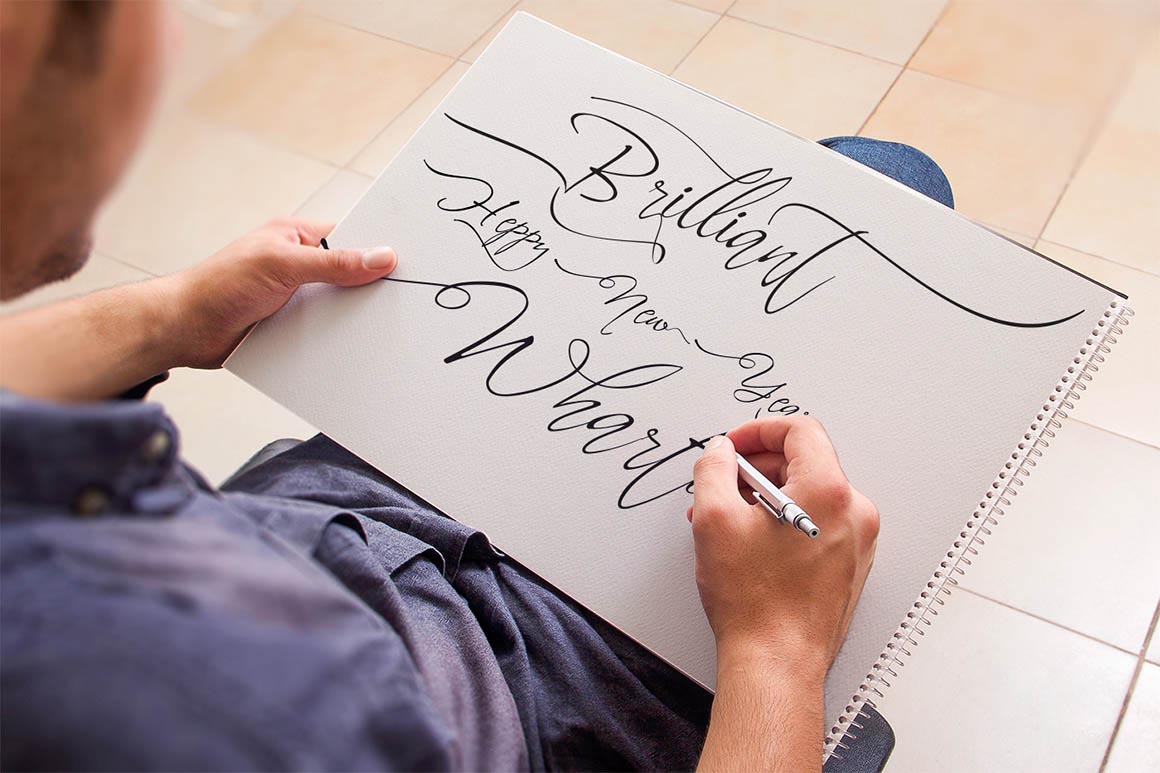 Brilliant
Heppy New Yea
Whart